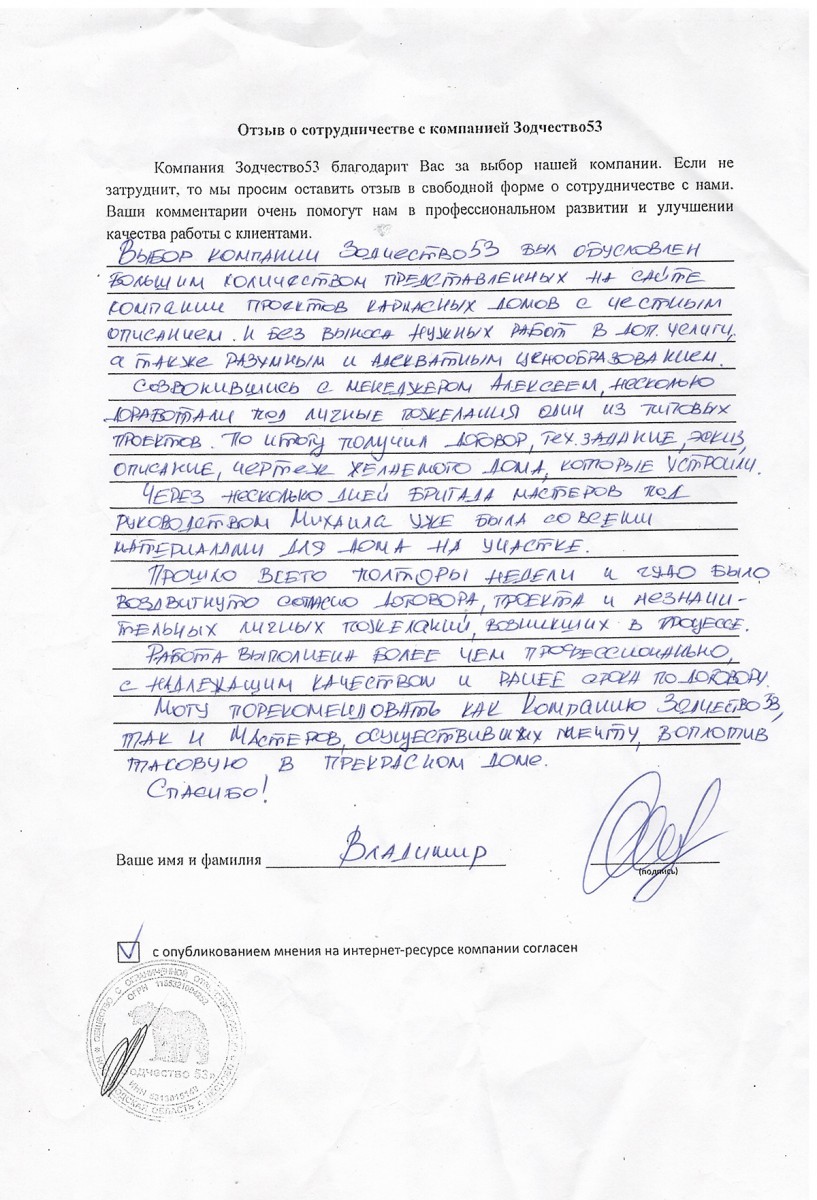 Отзыв о сотрудничестве с компанией Зодчество53
Компания Зодчество53 благодарит Вас за выбор нашей компании. Если не
затруднит, то мы просим оставить отзыв в свободной форме о сотрудничестве с нами.
Ваши комментарии очень помогут нам в профессиональном развитии и улучшении
качества работы с клиентами.
Выбор компании Зодчество53 был обусловлен
большим количеством представленных на сайте
компании проектов каркасных домов с честным
описанием. И без выноса нужных работ в доп. услугу,
а также разумным и адекватным ценообразованием.
Созвонившись с менеджером Алексеем, несколько
доработали под личные пожелания один из типовых
проектов. По итогу получил договор, тех. задание, эскиз,
описание, чертеж желаемого дома, которые устроили.
Через несколько дней бригада мастеров под
руководством Михаила уже была со всеми
материалами для дома на участке.
Прошло всего полторы недели и чудо было
воздвигнуто согласно договора, проекта и незначи-
тельных личных пожеланий, возникших в процессе.
Работа выполнена более чем профессионально,
с надлежащим качеством и ранее срока по договору.
Могу порекомендовать как Компанию Зодчество 53,
так и Мастеров, осуществивших мечту, воплотив
таковую в прекрасном доме.
Спасибо!
Ваше имя и фамилия Владимир
(подпись)
с опубликованием мнения на интернет-ресурсе компании согласен
ОБЩЕСТВО С ОГРАНИЧЕННОЙ
ОГРН
одчество 53»
ИНН
ОБЛАСТЬ